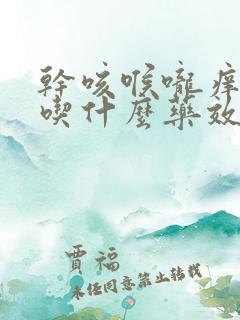 幹咳喉嚨痒
喫什麼藥效
賈福
未経同意禁止转载